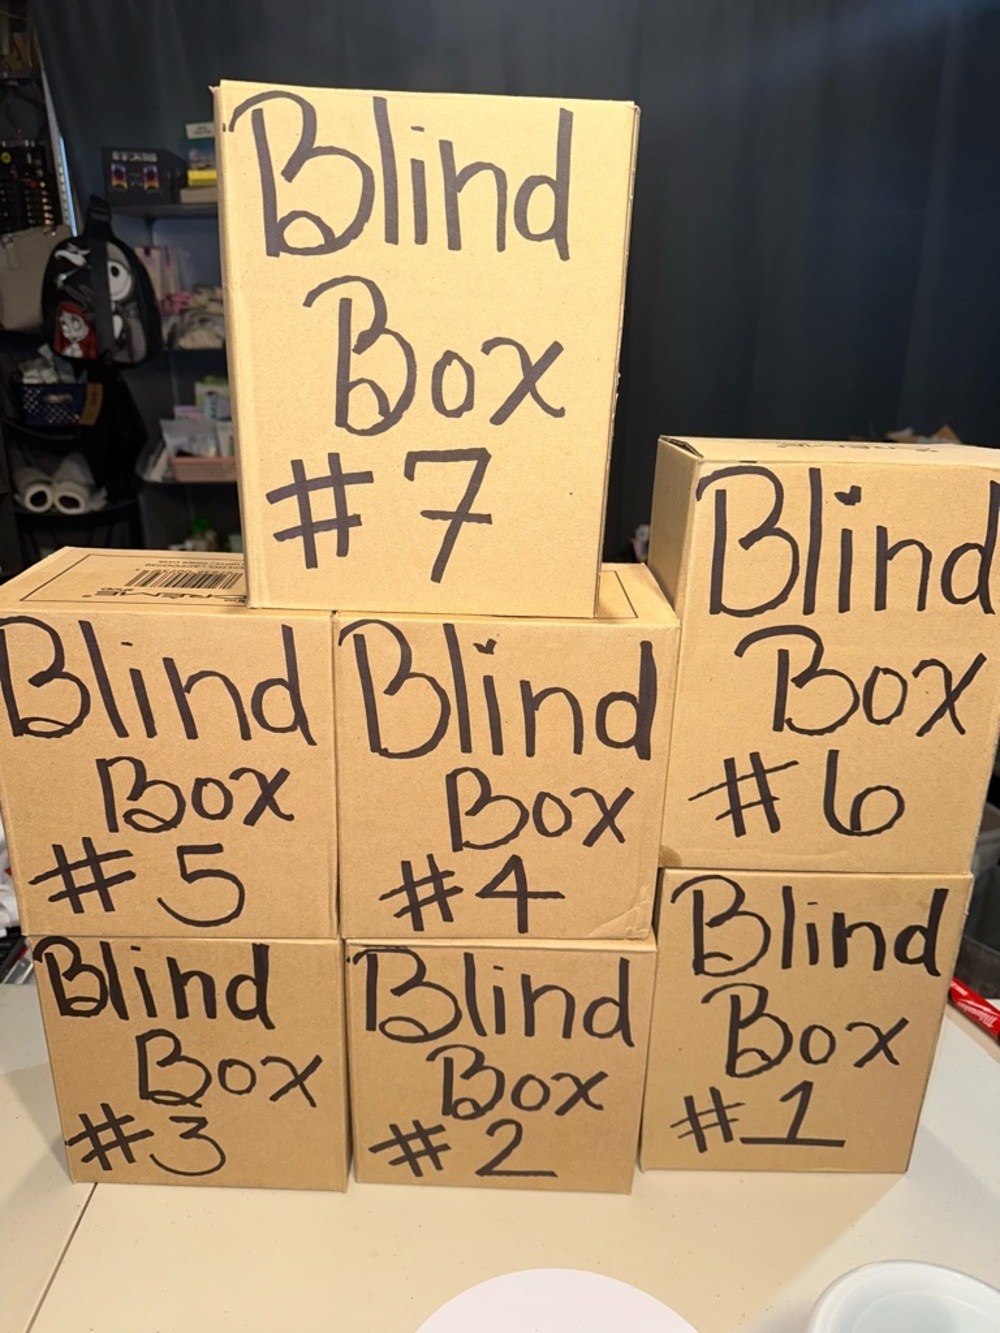 Blind
Box
#7
Blind
Box
#6
Blind
Box
#5
Blind
Box
#4
Blind
Box
#3
Blind
Box
#2
Blind
Box
#1